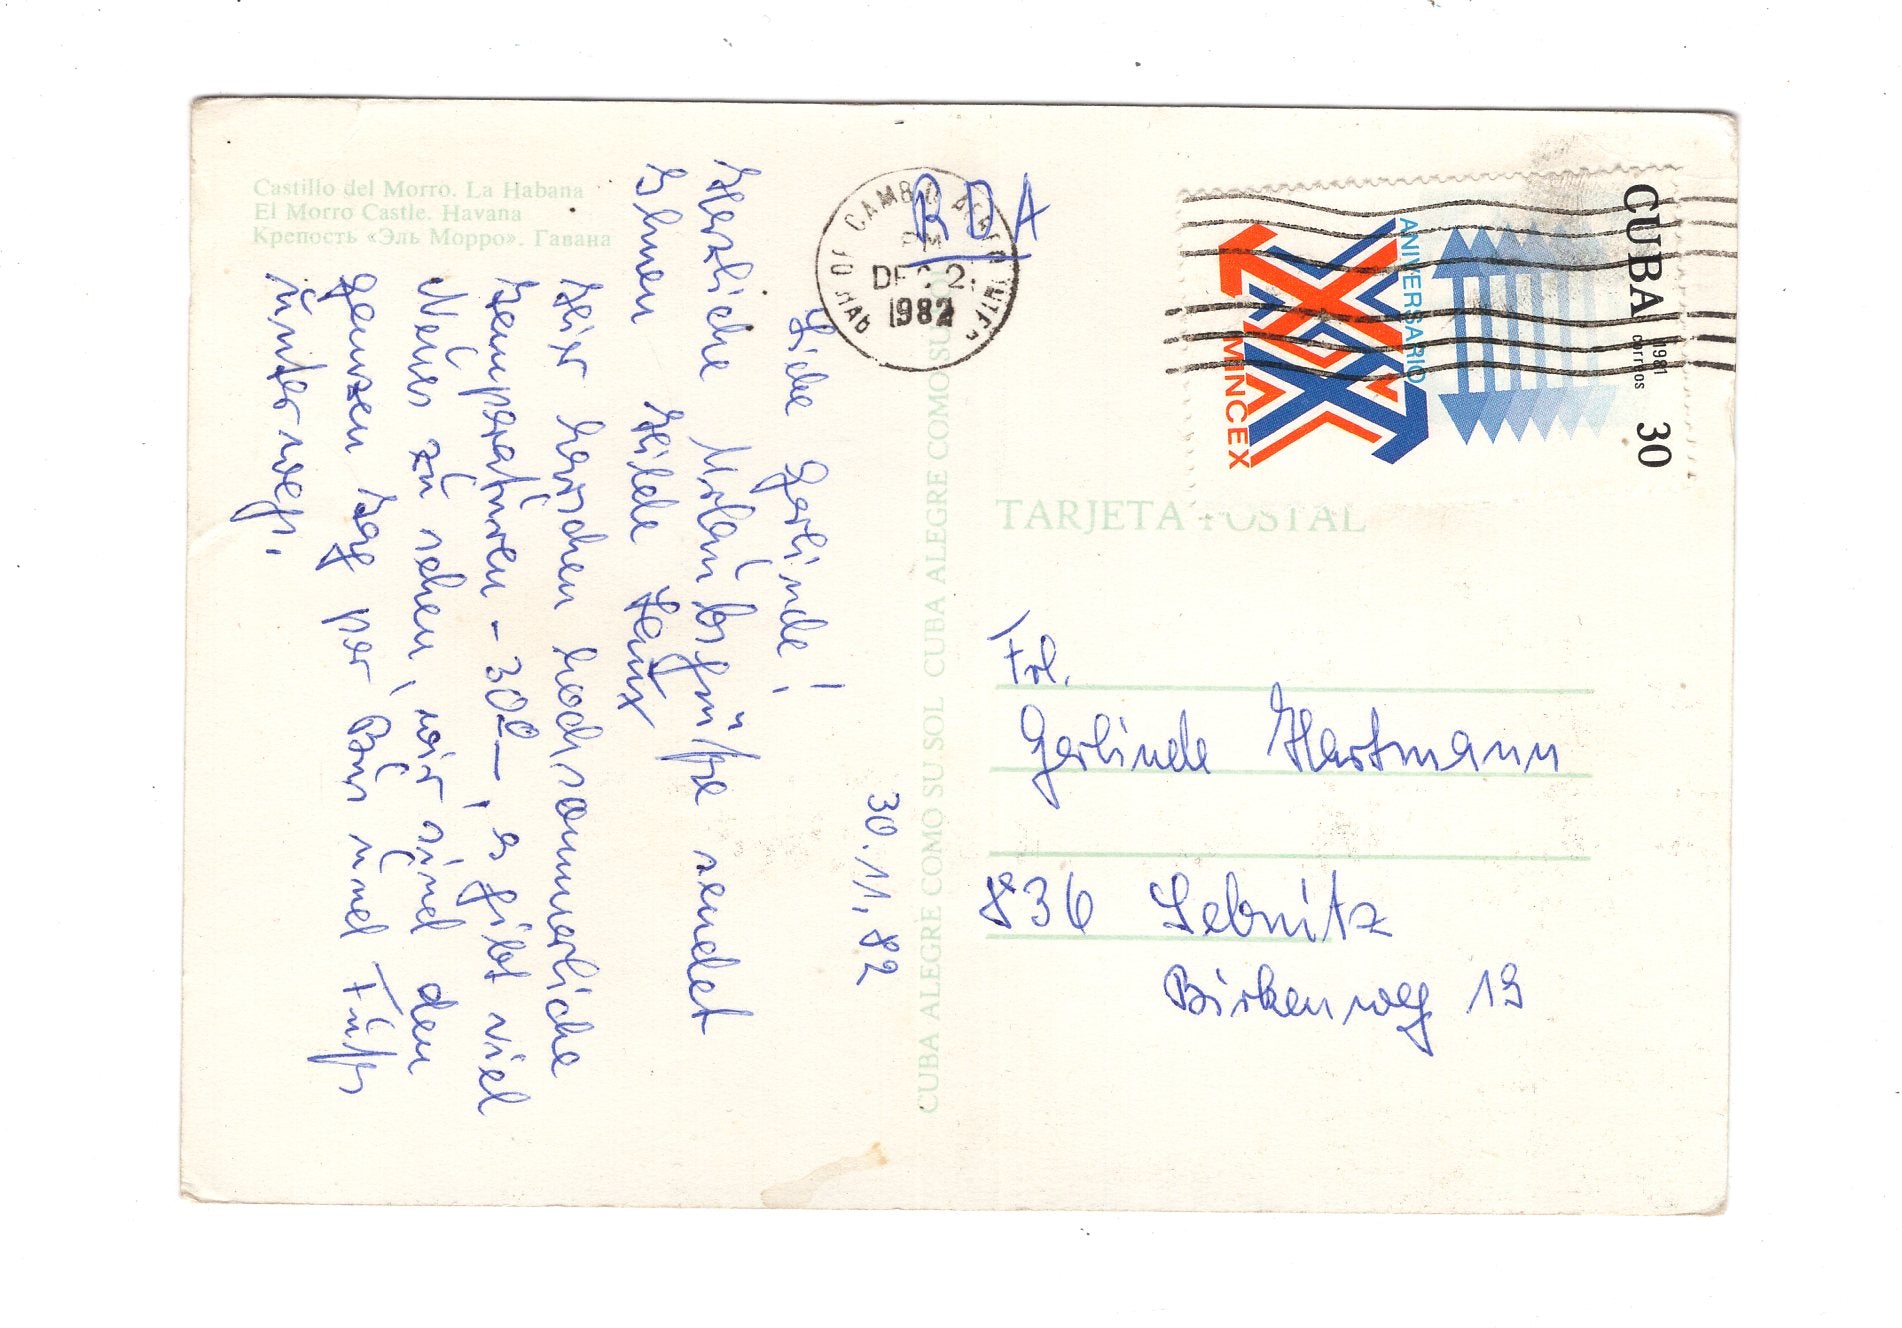 Castillo del Morro. La Habana
El Morro Castle. Havana
Крепость «Эль Морро». Гавана
30.11.82
Liebe Gerlinde!
Herzliche Urlaubsgrüße sendet
Ihnen Hilde
Hier herschen hochsommerliche
Temperaturen - 30° –, es gibt viel
Neues zu sehen, wir sind den
ganzen Tag per Bus und Fuß
unterwegs.
CUBA ALEGRE COMO SU SOL CUBA ALEGRE COMO SU
RDA
PM
DEC 2
1982
CUBA
1981
correos
30
ANIVERSARIO
XX
MINCEX
TARJETA POSTAL
Frl.
Gerlinde Hartmann
836 Sebnitz
Birkenweg 19